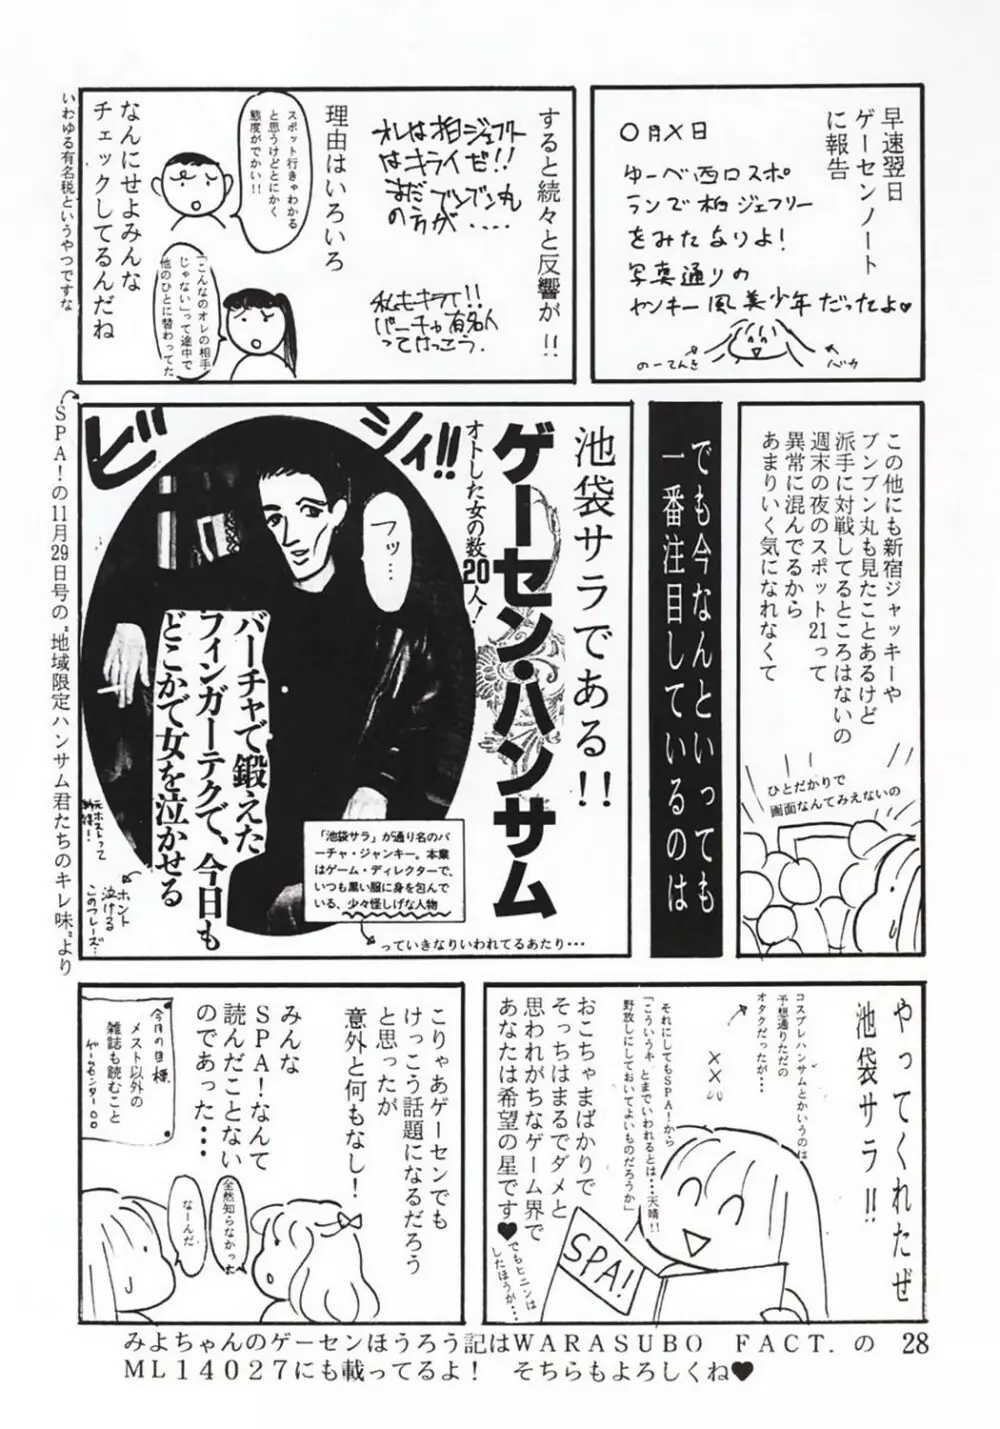 早速翌日
ゲーセンノート
に報告
〇月×日
ゆーべ西口スポ
ランで柏ジェフリー
をみたなりよ!
写真通りの
ヤンキー風美少年だったよ♥
のーてんき
バカ
すると続々と反響が!!
オレは柏ジェフリー
はキライだ!!
まだブンブン丸
の方が....
私もキライ!!
バーチャ有名人
ってけっこう.
理由はいろいろ
スポット行きゃわかる
と思うけどとにかく
態度がでかい!!
「こんなのオレの相手
じゃない」って途中で
他のひとに替わってた
なんにせよみんな
チェックしてるんだね
いわゆる有名税というやつですな
この他にも新宿ジャッキーや
ブンブン丸も見たことあるけど
派手に対戦してるところはないの
週末の夜のスポット21って
異常に混んでるから
あまりいく気になれなくて
ひとだかりで
画面なんてみえないの
でも今なんといっても
一番注目しているのは
池袋サラである!!
ゲーセン・ハンサム
オトした女の数20人!
ビシィ!!
フッ…
バーチャで鍛えた
フィンガーテクで、今日も
どこかで女を泣かせる
「池袋サラ」が通り名のバ
ーチャ・ジャンキー。本業
はゲーム・ディレクターで、
いつも黒い服に身を包んで
いる、少々怪しげな人物
っていきなりいわれてるあたり・・・
ホント
泣ける
このフレーズ…
元ホストって
SPA!の11月29日号の〝地域限定ハンサム君たちのキレ味〟より
やってくれたぜ
池袋サラ!!
コスプレハンサムとかいうのは
予想通りただの
オタクだったが・・・
それにしてもSPA!から
「こういうキ、とまでいわれるとは・・・天晴!!
野放しにしておいてよいものだろうか」
おこちゃまばかりで
そっちはまるでダメと
思われがちなゲーム界で
あなたは希望の星です♥
でもヒニンは
したほうが・・・
SPA!
こりゃあゲーセンでも
けっこう話題になるだろう
と思ったが
意外と何もなし!
みんな
SPA!なんて
読んだことない
のであった・・・
今月の目標
メスト以外の
雑誌も読むこと
ゲームセンター〇〇
全然知らなかった
なーんだ
みよちゃんのゲーセンほうろう記はWARASUBO FACT.の
ML14027にも載ってるよ! そちらもよろしくね♥
28